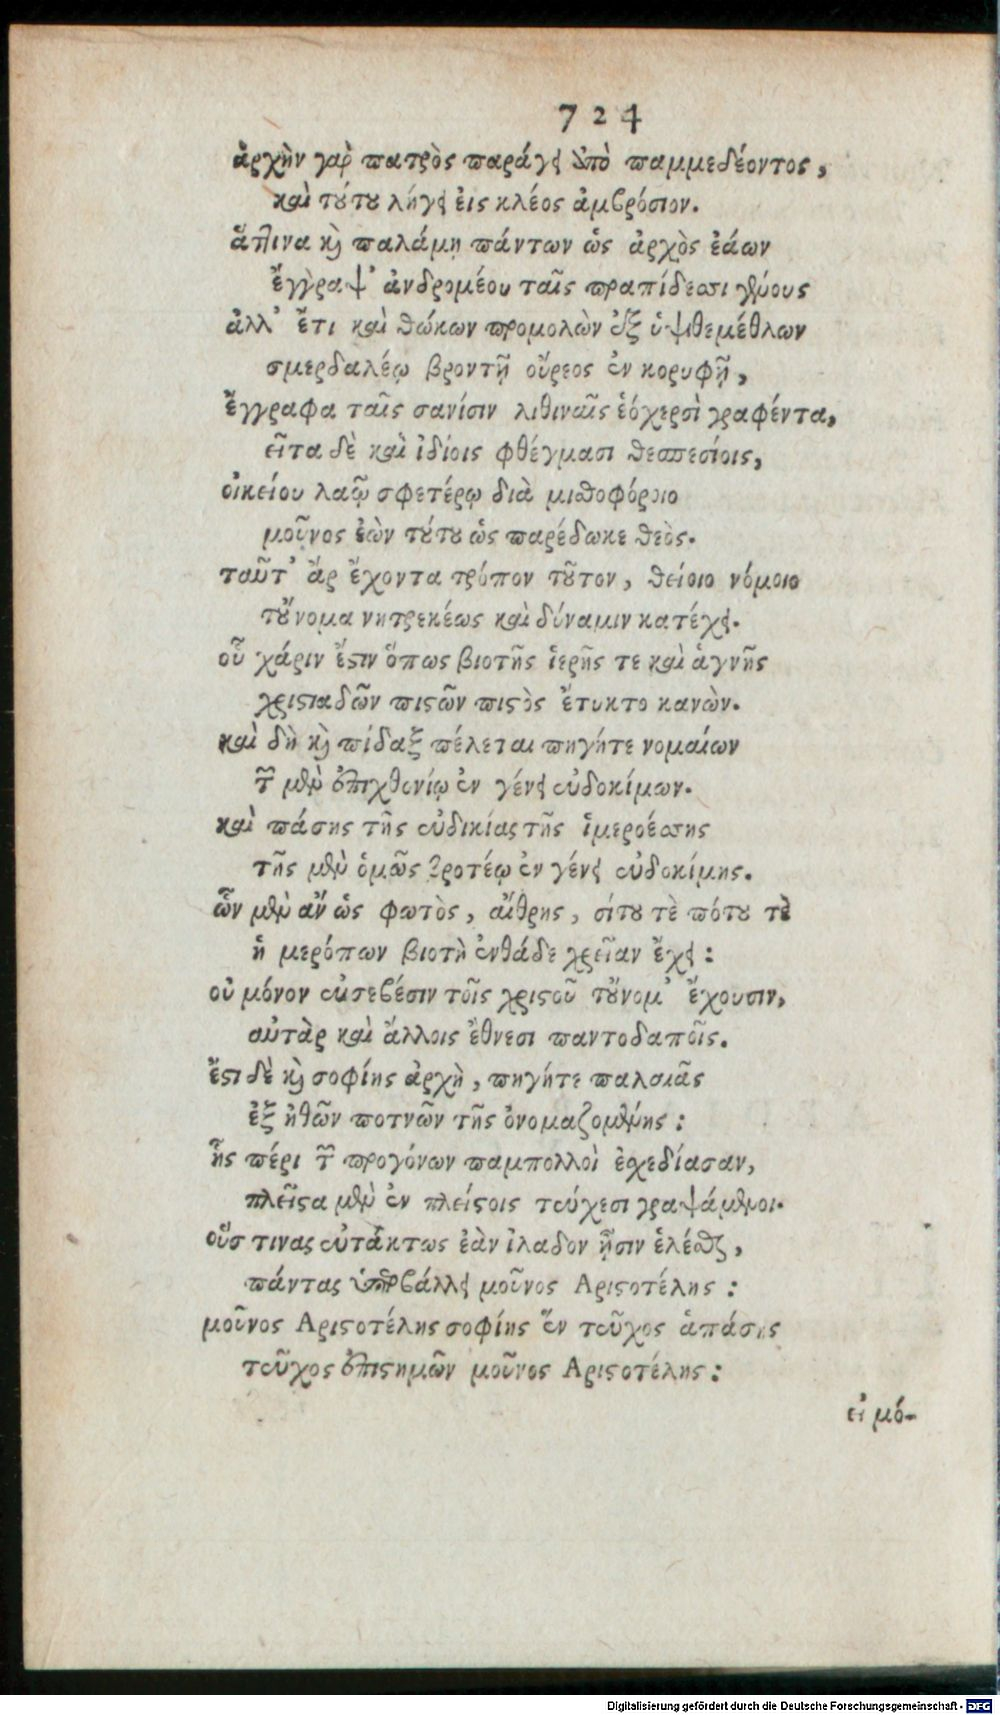 724
ἀρχὴν γὰρ πατρὸς παράγει ὑπὸ παμμεδέοντος,
καὶ τούτου λήγει εἰς κλέος ἀμβρόσιον.
ἅτινα καὶ παλάμῃ πάντων ὡς ἀρχὸς ἐάων
ἔγγραψ' ἀνδρομέου ταῖς πραπίδεσσι γένους
ἀλλ' ἔτι καὶ θώκων προμολὼν ἐξ ὑψιθεμέθλων
σμερδαλέῳ βροντῇ οὔρεος ἐν κορυφῇ,
ἔγγραφα ταῖς σανίσιν λιθιναῖς ἑόχερσὶ γραφέντα,
εἶτα δὲ καὶ ἰδίοις φθέγμασι θεσπεσίοις,
οἰκείου λαῷ σφετέρῳ διὰ μισθοφόροιο
μοῦνος ἐὼν τούτου ὡς παρέδωκε θεὸς.
ταῦτ' ἄρ ἔχοντα τρόπον τοῦτον, θείοιο νόμοιο
τοὔνομα νητρεκέως καὶ δύναμιν κατέχει.
οὗ χάριν ἔστιν ὅπως βιοτῆς ἱερῆς τε καὶ ἁγνῆς
χριστιαδῶν πιστῶν πιστὸς ἔτυκτο κανὼν.
καὶ δὴ καὶ πίδαξ πέλεται πηγήτε νομαίων
τῶν μὲν ἐπιχθονίῳ ἐν γένει εὐδοκίμων.
καὶ πάσης τῆς εὐδικίας τῆς ἱμεροέσσης
τῆς μὲν ὁμῶς βροτέῳ ἐν γένει εὐδοκίμης.
ὧν μὲν ἂν ὡς φωτὸς, αἴθρης, σίτου τὲ πότου τὲ
ἡ μερόπων βιοτὴ ἐνθάδε χρεῖαν ἔχει:
οὐ μόνον εὐσεβέσιν τοῖς χριστοῦ τοὔνομ' ἔχουσιν,
αὐτὰρ καὶ ἄλλοις ἔθνεσι παντοδαποῖς.
ἔστι δὲ καὶ σοφίης ἀρχὴ, πηγήτε παλαιᾶς
ἐξ ἠθῶν ποτνῶν τῆς ὀνομαζομένης:
ἧς πέρι τῶν προγόνων παμπολλοὶ ἐσχεδίασαν,
πλεῖστα μὲν ἐν πλείστοις τεύχεσι γραψάμενοι.
οὕστινας εὐτάκτως ἐὰν ἰλαδον ᾗσιν ἑλέσθαι,
πάντας ὑπερβάλλει μοῦνος Αριστοτέλης:
μοῦνος Αριστοτέλης σοφίης ἓν τεῦχος ἁπάσης
τεῦχος ἐπιστημῶν μοῦνος Αριστοτέλης:
εἰ μό-
Digitalisierung gefördert durch die Deutsche Forschungsgemeinschaft - DFG